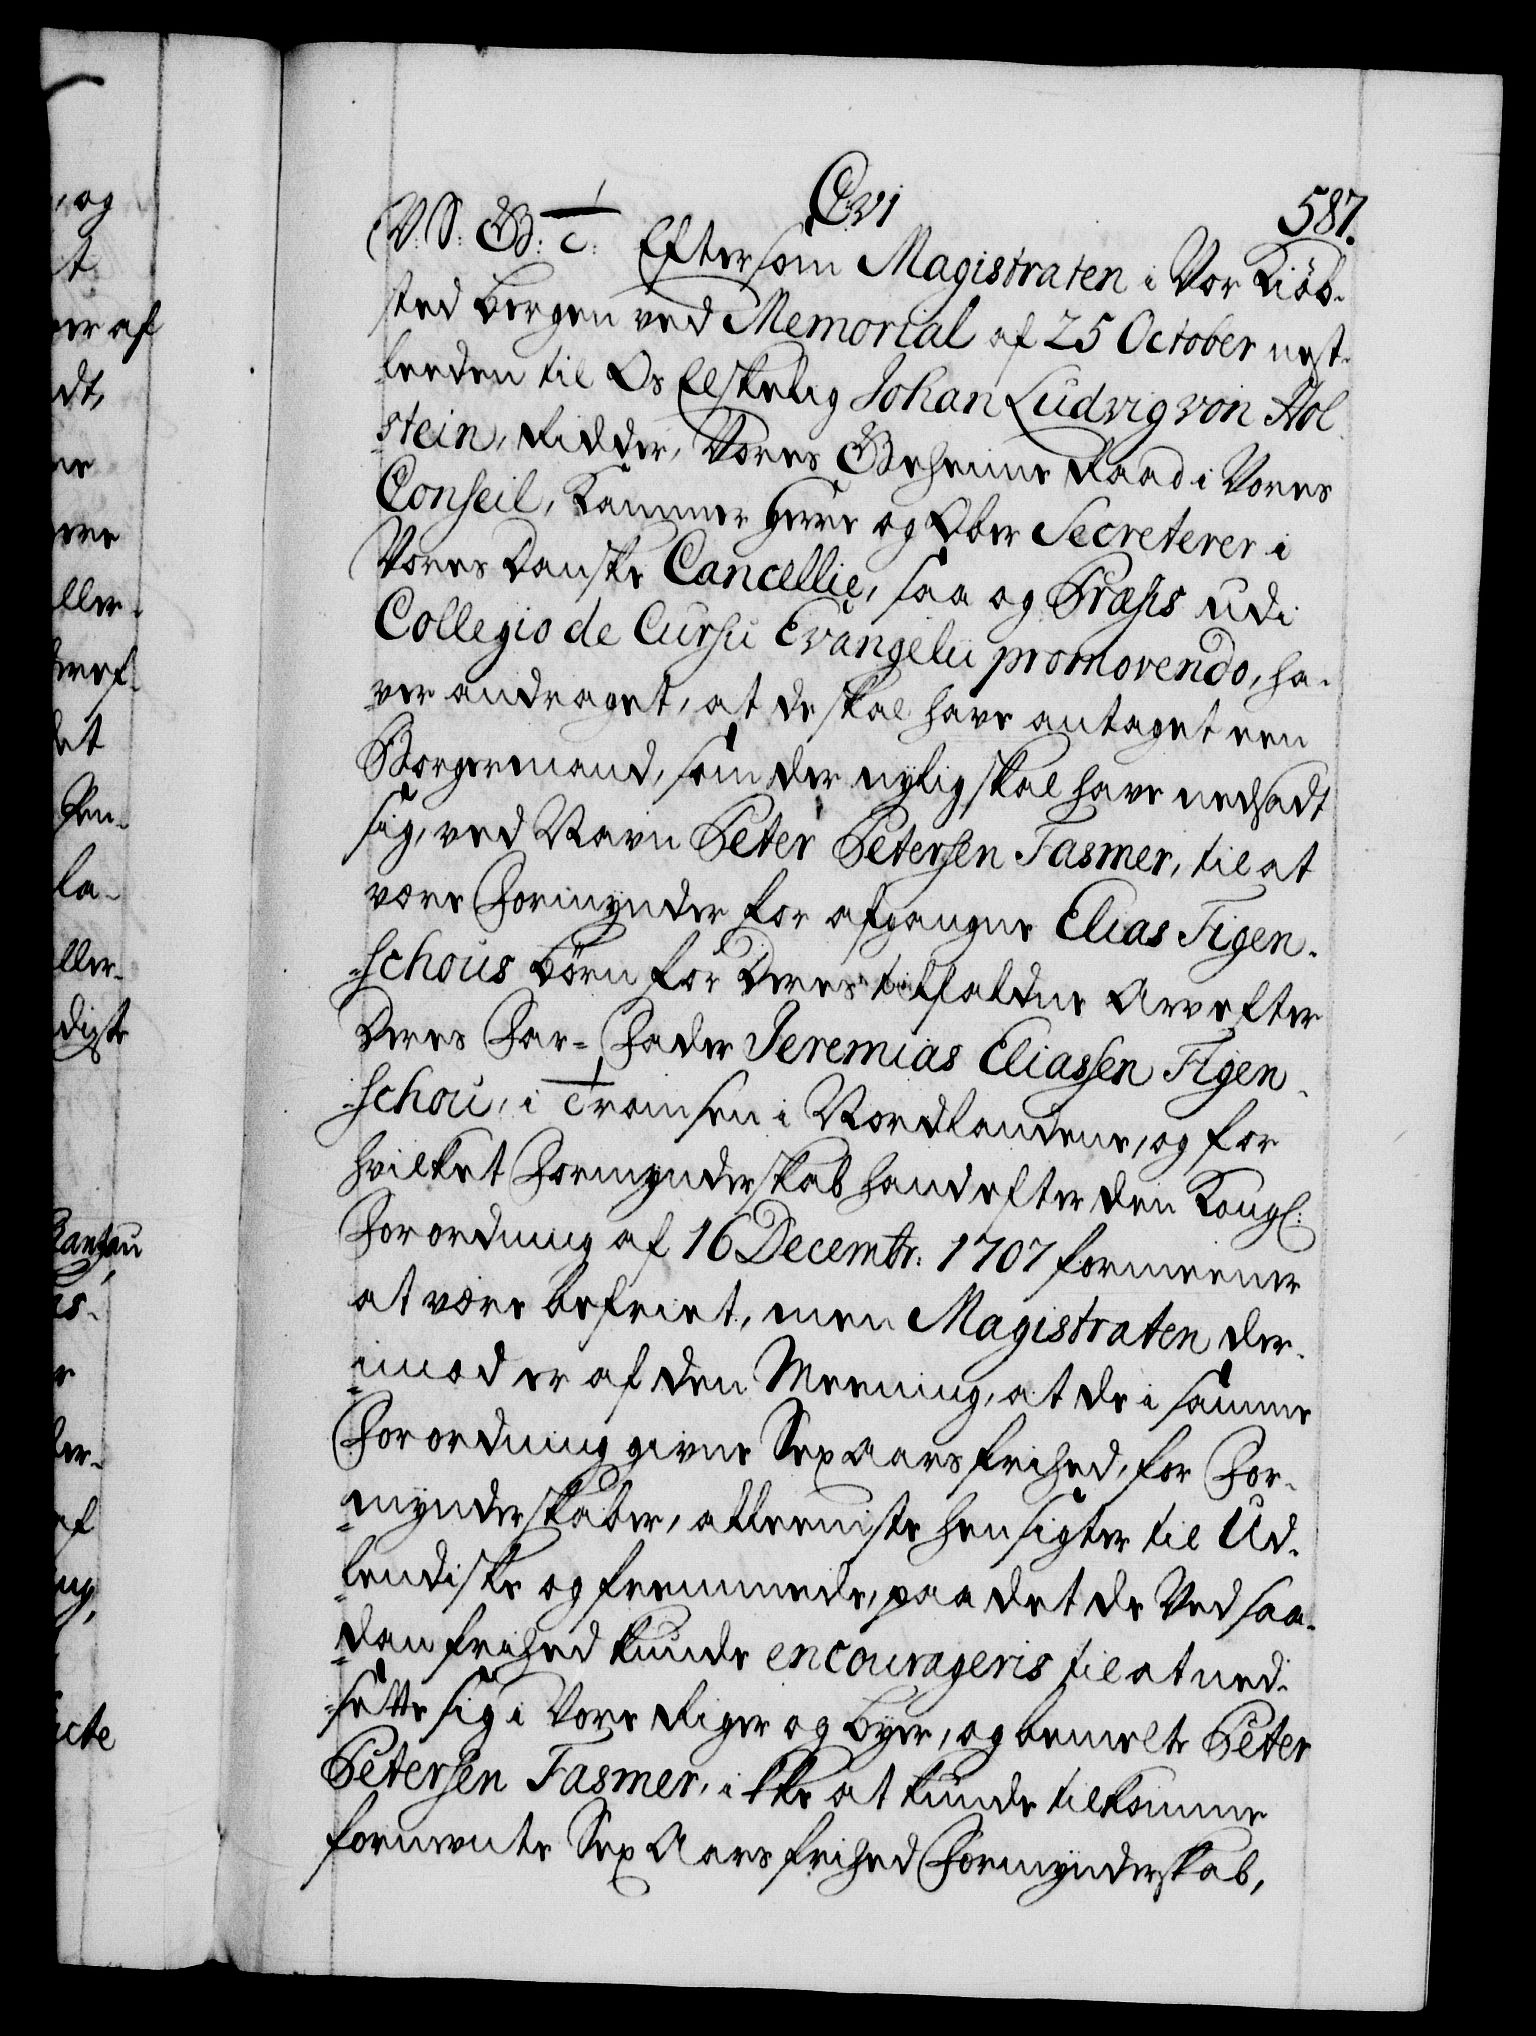 C vi
587.
V: S: G: T: Eftersom Magistraten i Vor Kiöb-
sted Bergen ved Memorial af 25 October nest-
leeden til Os Elskelig Johan Ludvig von Hol
-stein, Ridder, Vores Geheime Raad i Vores
Conseil, Kammer Herre og Ober Secreterer i
Vores Danske Cancellie, saa og Præses udi
Collegio de Cursu Evangelii promovendo, ha-
ver andraget, at de skal have antaget een
Borgermand, som der nylig skal have nedsadt
sig, ved Navn Peter Petersen Fasmer, til at
være Formynder for afgangne Elias Figen-
-schous Børn for Deres tilfaldne Arv efter
Deres Far-Fader Jeremias Eliassen Figen-
-schou, i Tromsen i Nordlandene, og for
hvilket Formynderskab hand efter den Kongl:
Forordning af 16 Decembr: 1707 formeener
at være befriet, men Magistraten der-
-imod er af den Meening, at de i samme
Forordning givne Sex Aars frihed, for For-
-mynderskaber, alleeniste hensigter til Ud-
-lendiske og fremmede, paa det de Ved saa-
-dan frihed kunde encourageris til at ned-
-sette sig i Vore Riger og Byer, og bemelte Peter
Petersen Fasmer, ikke at kunde tilkomme
formente Sex Aars frihed Formynderskab,
, og
t
er af
dt,
ne
ere
ller-
eref-
det
Pen-
la-
ller-
digst
Rantzau,
es-
r
ber-
ef
ing,
icte